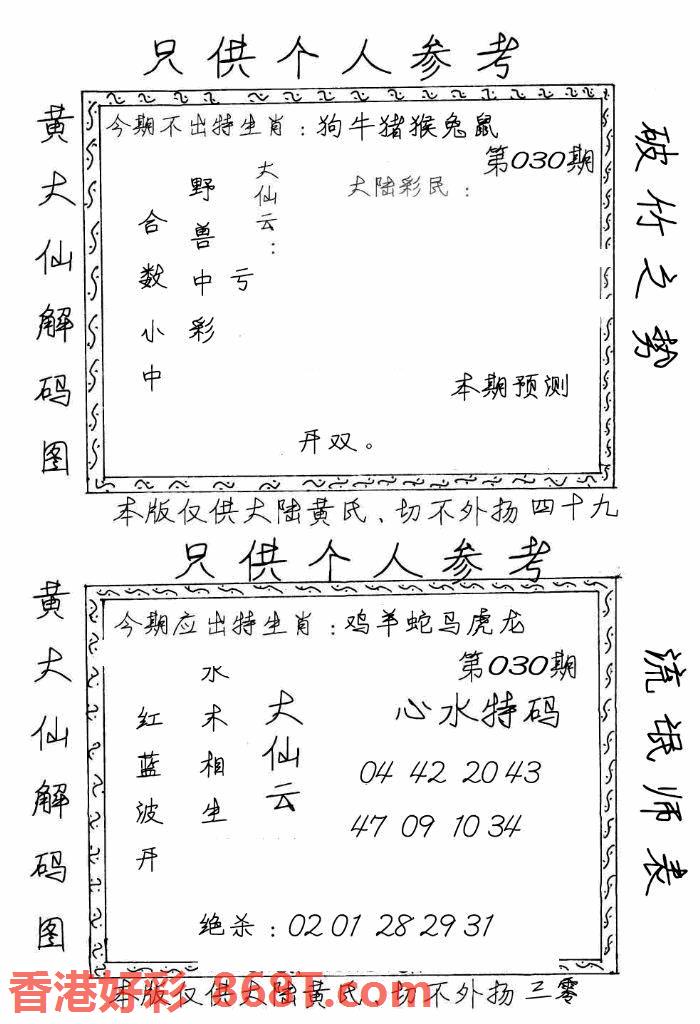 只供个人参考
黄大仙解码图
今期不出特生肖：狗牛猪猴兔鼠
第030期
大仙云：
野兽中彩
亏
合数小中
大陆彩民：
本期预测
开双。
破竹之势
本版仅供大陆黄氏、切不外扬四十九
只供个人参考
黄大仙解码图
今期应出特生肖：鸡羊蛇马虎龙
第030期
大仙云
水木相生
红蓝波开
心水特码
04 42 20 43
47 09 10 34
绝杀：02 01 28 29 31
流氓师表
本版仅供大陆黄氏、切不外扬三零
香港好彩 868T.com